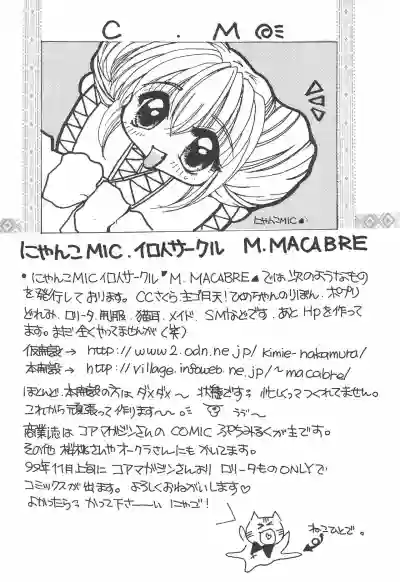 C . M
にゃんこMIC
にゃんこMIC.イロイロサークル M.MACABRE
・にゃんこMICイロイロサークル M.MACABRE では次のようなもの
を発行しております。CCさくら 主ゴ月天! ひめちゃんのりぼん、ポプリ
どれみ、ロリータ、制服、猫耳、メイド、SMなどです。あと Hpを作って
ます。まだ全くやってませんが(笑)
仮施設→ http://www2.odn.ne.jp/kimie-nakamura/
本施設→ http://village.infoweb.ne.jp/~macabre/
ほとんど、本施設の方は ダメダメ〜 状態です。忙しくってつくれてません。
これから頑張って作ります〜〜。 うう〜
商業誌は コアマガジンさんの COMIC ぷちみるくが主です。
その他 さんやオークラさんにもかいてます。
99年11月上旬に コアマガジンさんより ロリータものONLYで
コミックスが出ます。よろしくおねがいします♡
よかったら? かって下さーい にゃご!
ねこひとで。